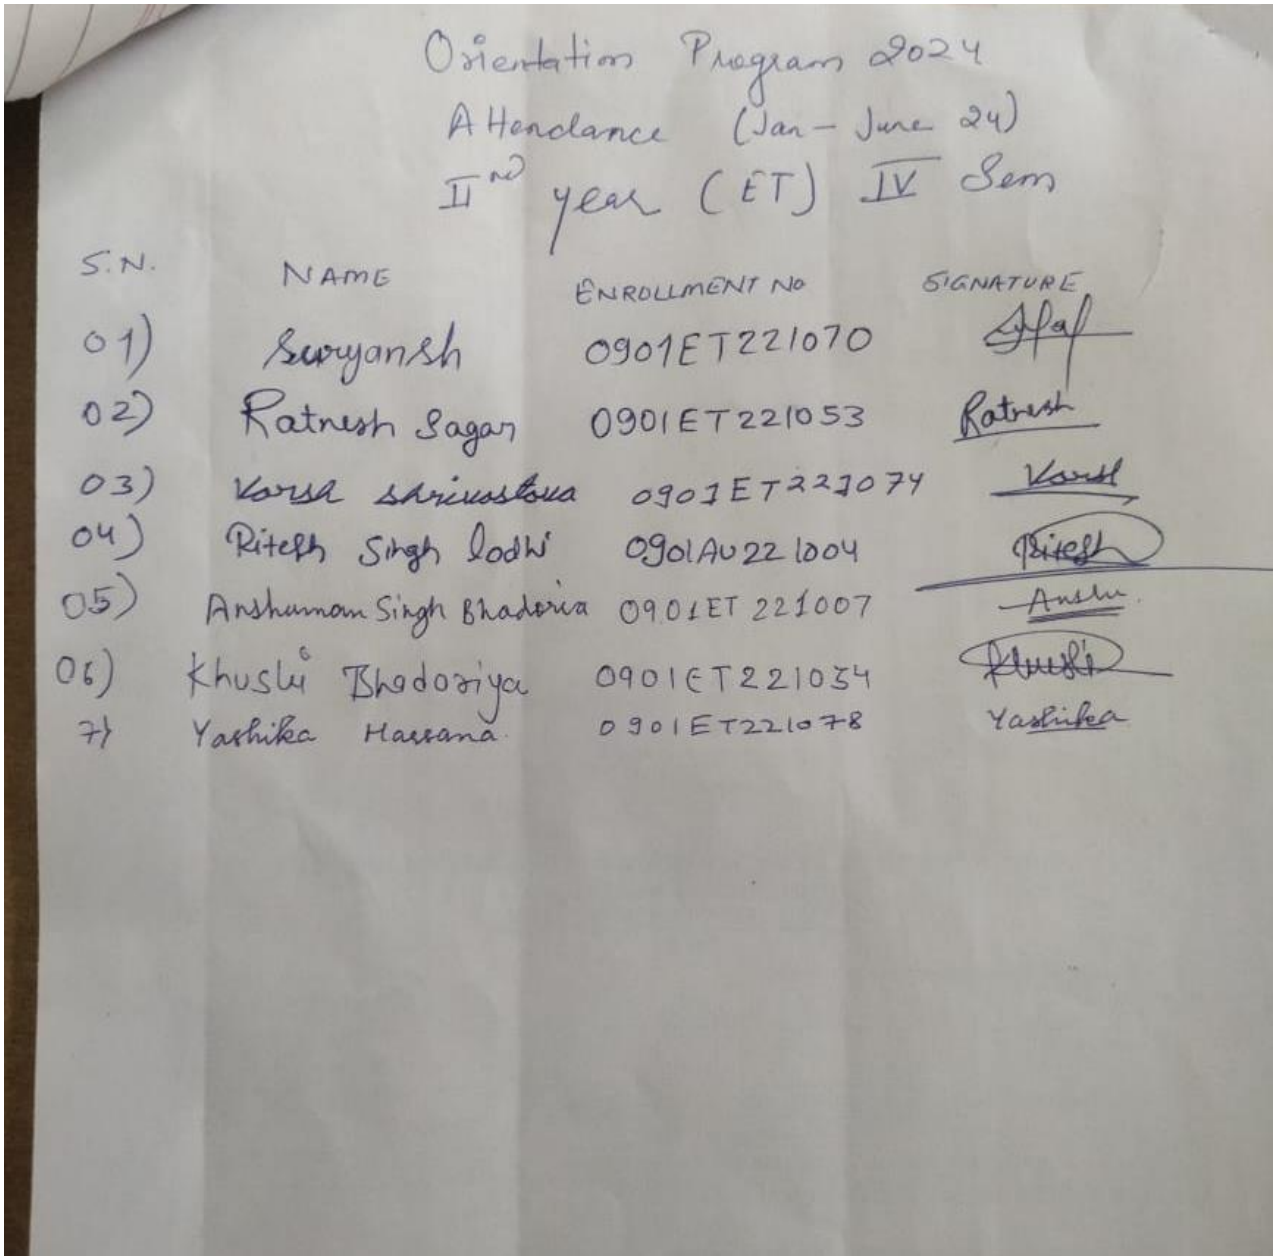 Orientation Program 2024
Attendance (Jan - June 24)
IInd year (ET) IV Sem
S.N. NAME ENROLLMENT NO SIGNATURE
01) Suryansh 0901ET221070
02) Ratnesh Sagar 0901ET221053 Ratnesh
03) Varsa shrivastava 0901ET221074 Varsa
04) Ritesh Singh lodhi 0901AU221004 Ritesh
05) Anshuman Singh Bhadoria 0901ET221007 Anshu
06) Khushi Bhadoriya 0901ET221034 Khushi
7) Yashika Harsana. 0901ET221078 Yashika